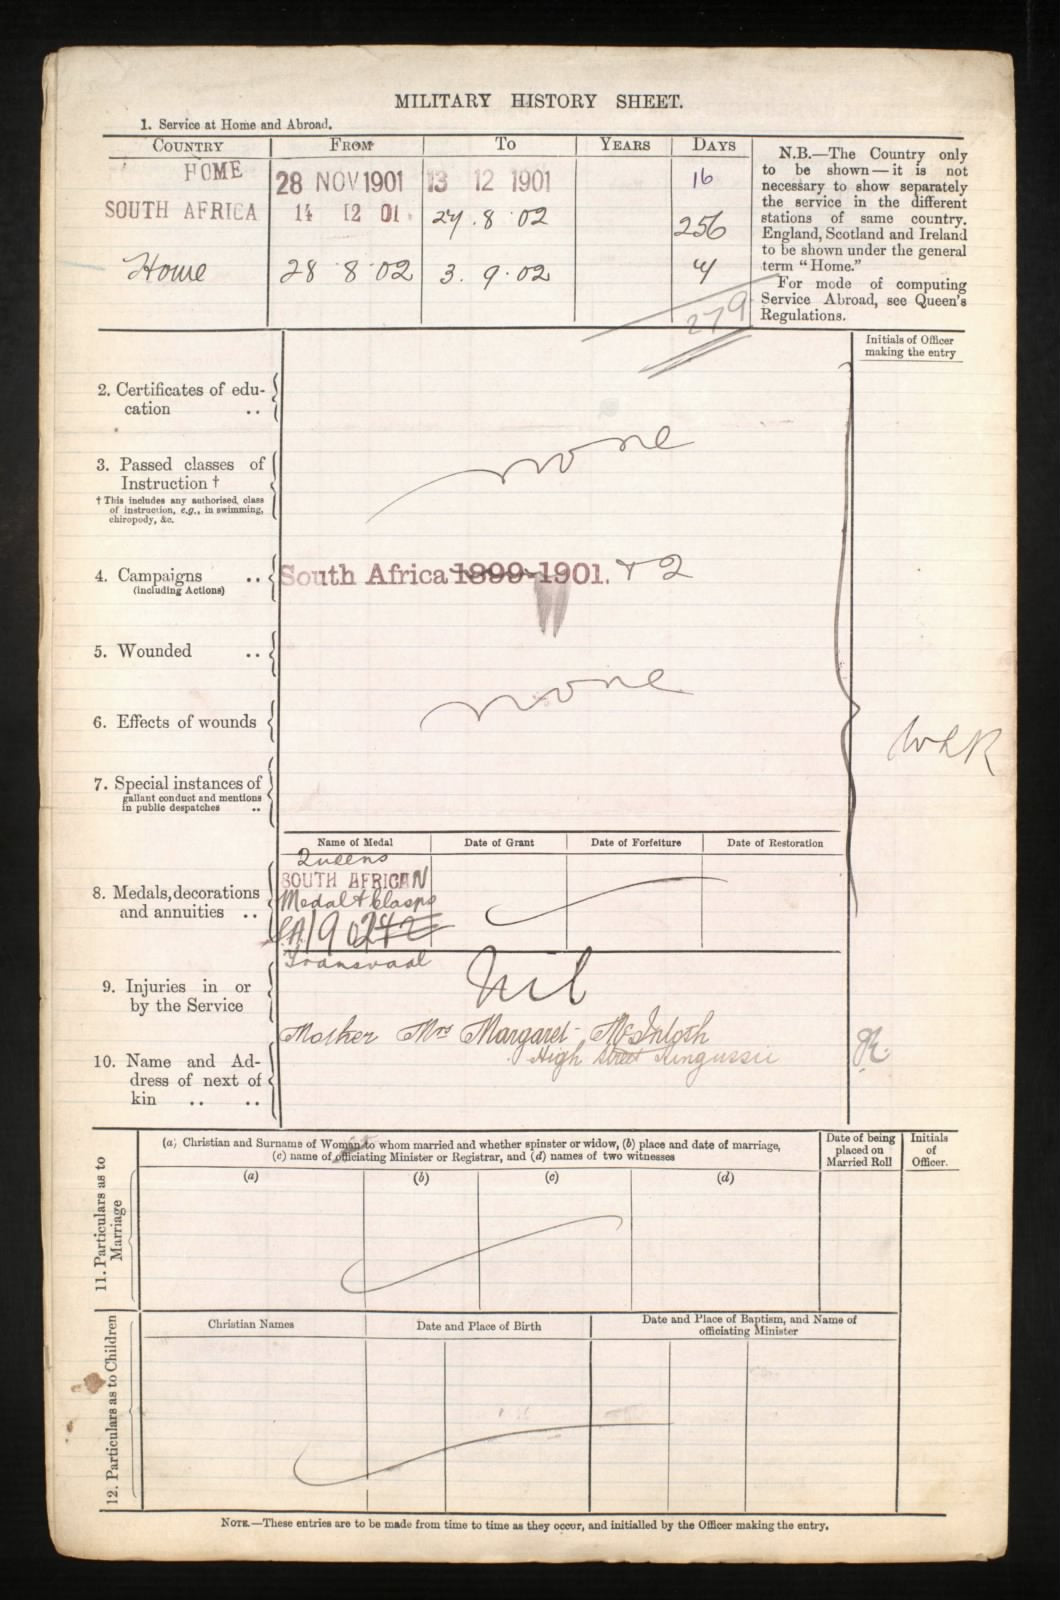 MILITARY HISTORY SHEET.
1. Service at Home and Abroad.
COUNTRY FROM TO YEARS DAYS
HOME 28 NOV 1901 13 12 1901 16
SOUTH AFRICA 14 12 01 27.8.02 256
Home 28 8 02 3.9.02 7
279
N.B.—The Country only
to be shown—it is not
necessary to show separately
the service in the different
stations of same country.
England, Scotland and Ireland
to be shown under the general
term "Home."
For mode of computing
Service Abroad, see Queen's
Regulations.
Initials of Officer
making the entry
2. Certificates of edu-
cation ..
3. Passed classes of
Instruction †
† This includes any authorised class
of instruction, e.g., in swimming,
chiropody, &c.
none
4. Campaigns ..
(including Actions)
South Africa 1899-1901. + 2
5. Wounded ..
none
6. Effects of wounds
7. Special instances of
gallant conduct and mentions
in public despatches ..
Name of Medal Date of Grant Date of Forfeiture Date of Restoration
8. Medals, decorations
and annuities ..
Queens
SOUTH AFRICAN
Medal & Clasps
Transvaal
9. Injuries in or
by the Service
Nil
10. Name and Ad-
dress of next of
kin .. ..
Mother Mrs Margaret McIntosh
High Street Kingussie
11. Particulars as to
Marriage
(a) Christian and Surname of Woman to whom married and whether spinster or widow, (b) place and date of marriage,
(c) name of officiating Minister or Registrar, and (d) names of two witnesses
Date of being
placed on
Married Roll
Initials
of
Officer.
(a) (b) (c) (d)
12. Particulars as to Children
Christian Names Date and Place of Birth Date and Place of Baptism, and Name of
officiating Minister
NOTE.—These entries are to be made from time to time as they occur, and initialled by the Officer making the entry.